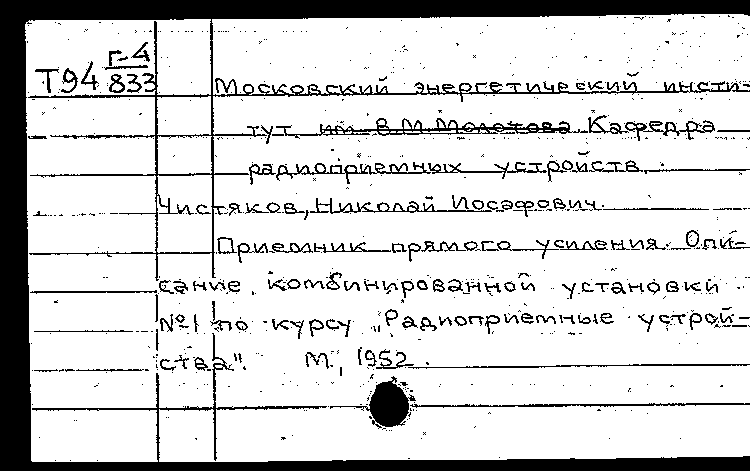 Т94 Г-4
833
Московский энергетический инсти-
тут им. В.М.Молотова. Кафедра
радиоприемных устройств.
Чистяков, Николай Иосафович.
Приемник прямого усиления. Опи-
сание комбинированной установки
№1 по курсу „Радиоприемные устрой-
ства". М., 1952.